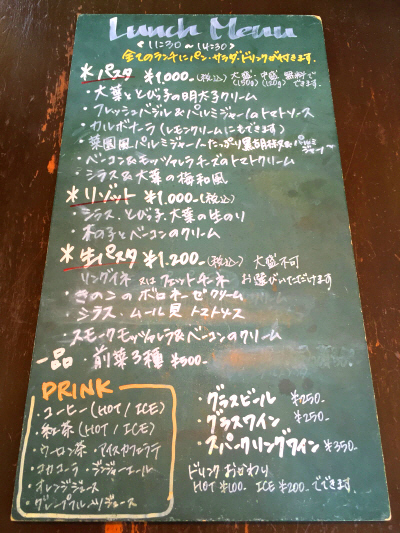 Lunch Menu
<11:30～14:30>
全てのランチにパン・サラダ・ドリンクが付きます.
*パスタ ¥1,000-(税込) 大盛・中盛 無料で
(150g) (120g) できます.
・大葉ととび子の明太子クリーム
・フレッシュバジル&パルミジャーノのトマトソース
・カルボナーラ(レモンクリームにもできます)
・菜園風パルミジャーノたっぷり黒胡椒&パルミジャーノ
・ベーコン&モッツァレラチーズのトマトクリーム
・シラス&大葉の梅和風
*リゾット ¥1,000-(税込)
・シラス、とび子、大葉の生のり
・木の子とベーコンのクリーム
*生パスタ ¥1,200-(税込) 大盛不可
リングイネ 又は フェットチーネ お選びいただけます
・きのこのボロネーゼクリーム
・シラス・ムール貝 トマトソース
・スモークモッツァレラ&ベーコンのクリーム
一品・前菜3種 ¥500-
DRINK
・コーヒー(HOT/ICE)
・紅茶(HOT/ICE)
・ウーロン茶・アイスカフェラテ
・コカコーラ・ジンジャーエール
・オレンジジュース
・グレープフルーツジュース
・グラスビール ¥250-
・グラスワイン ¥250-
・スパークリングワイン ¥350-
ドリンクおかわり
HOT ¥100- ICE ¥200-でできます.